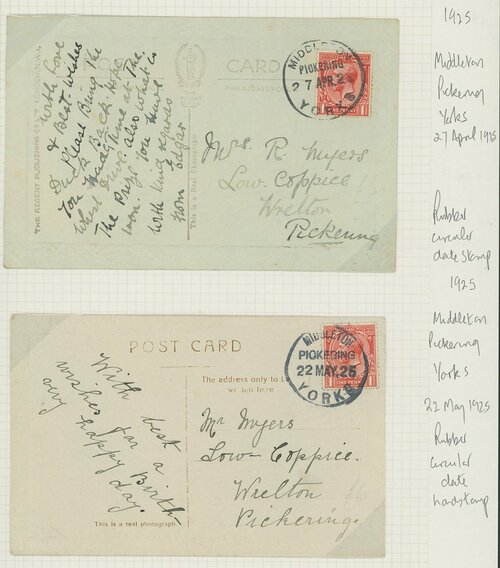 1925
Middleton
Pickering
Yorks
27 April 1925
Rubber
circular
date stamp
CARD
THE ADDRESS
MIDDLETON
PICKERING
27 APR. 25
YORKS
With Love
& Best wishes
Please Bring the
Back. hope
had a good time at the
also what is
the Prize you have
won.
With kind regards
from Edgar
THE REGENT PUBLISHING
This is a Real Photograph
Mrs. R. Myers
Low. Coppice
Wrelton
Pickering
1925
Middleton
Pickering
Yorks
22 May 1925
Rubber
circular
date
handstamp
POST CARD
The address only to be
written here
MIDDLETON
PICKERING
22 MAY. 25
YORKS
ONE PENNY
With best
wishes for a
very happy Birth-
day.
This is a real photograph.
Mr Myers
Low- Coppice.
Wrelton
Pickering.